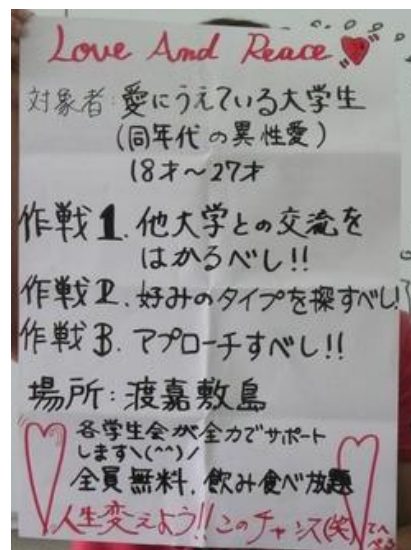 Love And Peace
対象者:愛にうえている大学生
(同年代の異性愛)
18才〜27才
作戦1.他大学との交流を
はかるべし!!
作戦2.好みのタイプを探すべし!
作戦3.アプローチすべし!!
場所:渡嘉敷島
各学生会が全力でサポート
します\(^^)/
全員無料、飲み食べ放題
人生変えよう!!このチャンス(笑)てへ
ぺろ